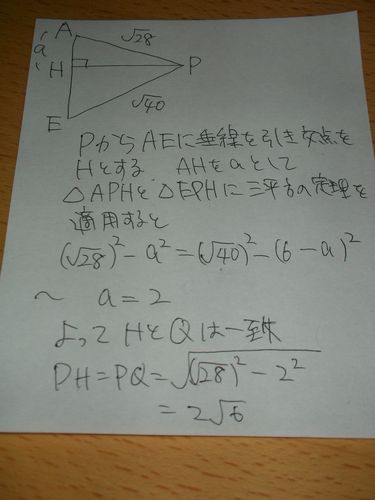 A
√28
a
H
P
√40
E
PからAEに垂線を引き交点を
Hとする AHをaとして
△APHと△EPHに三平方の定理を
適用すると
(√28)² - a² = (√40)² - (6 - a)²
~ a = 2
よってHとQは一致
PH = PQ = √((√28)² - 2²)
= 2√6